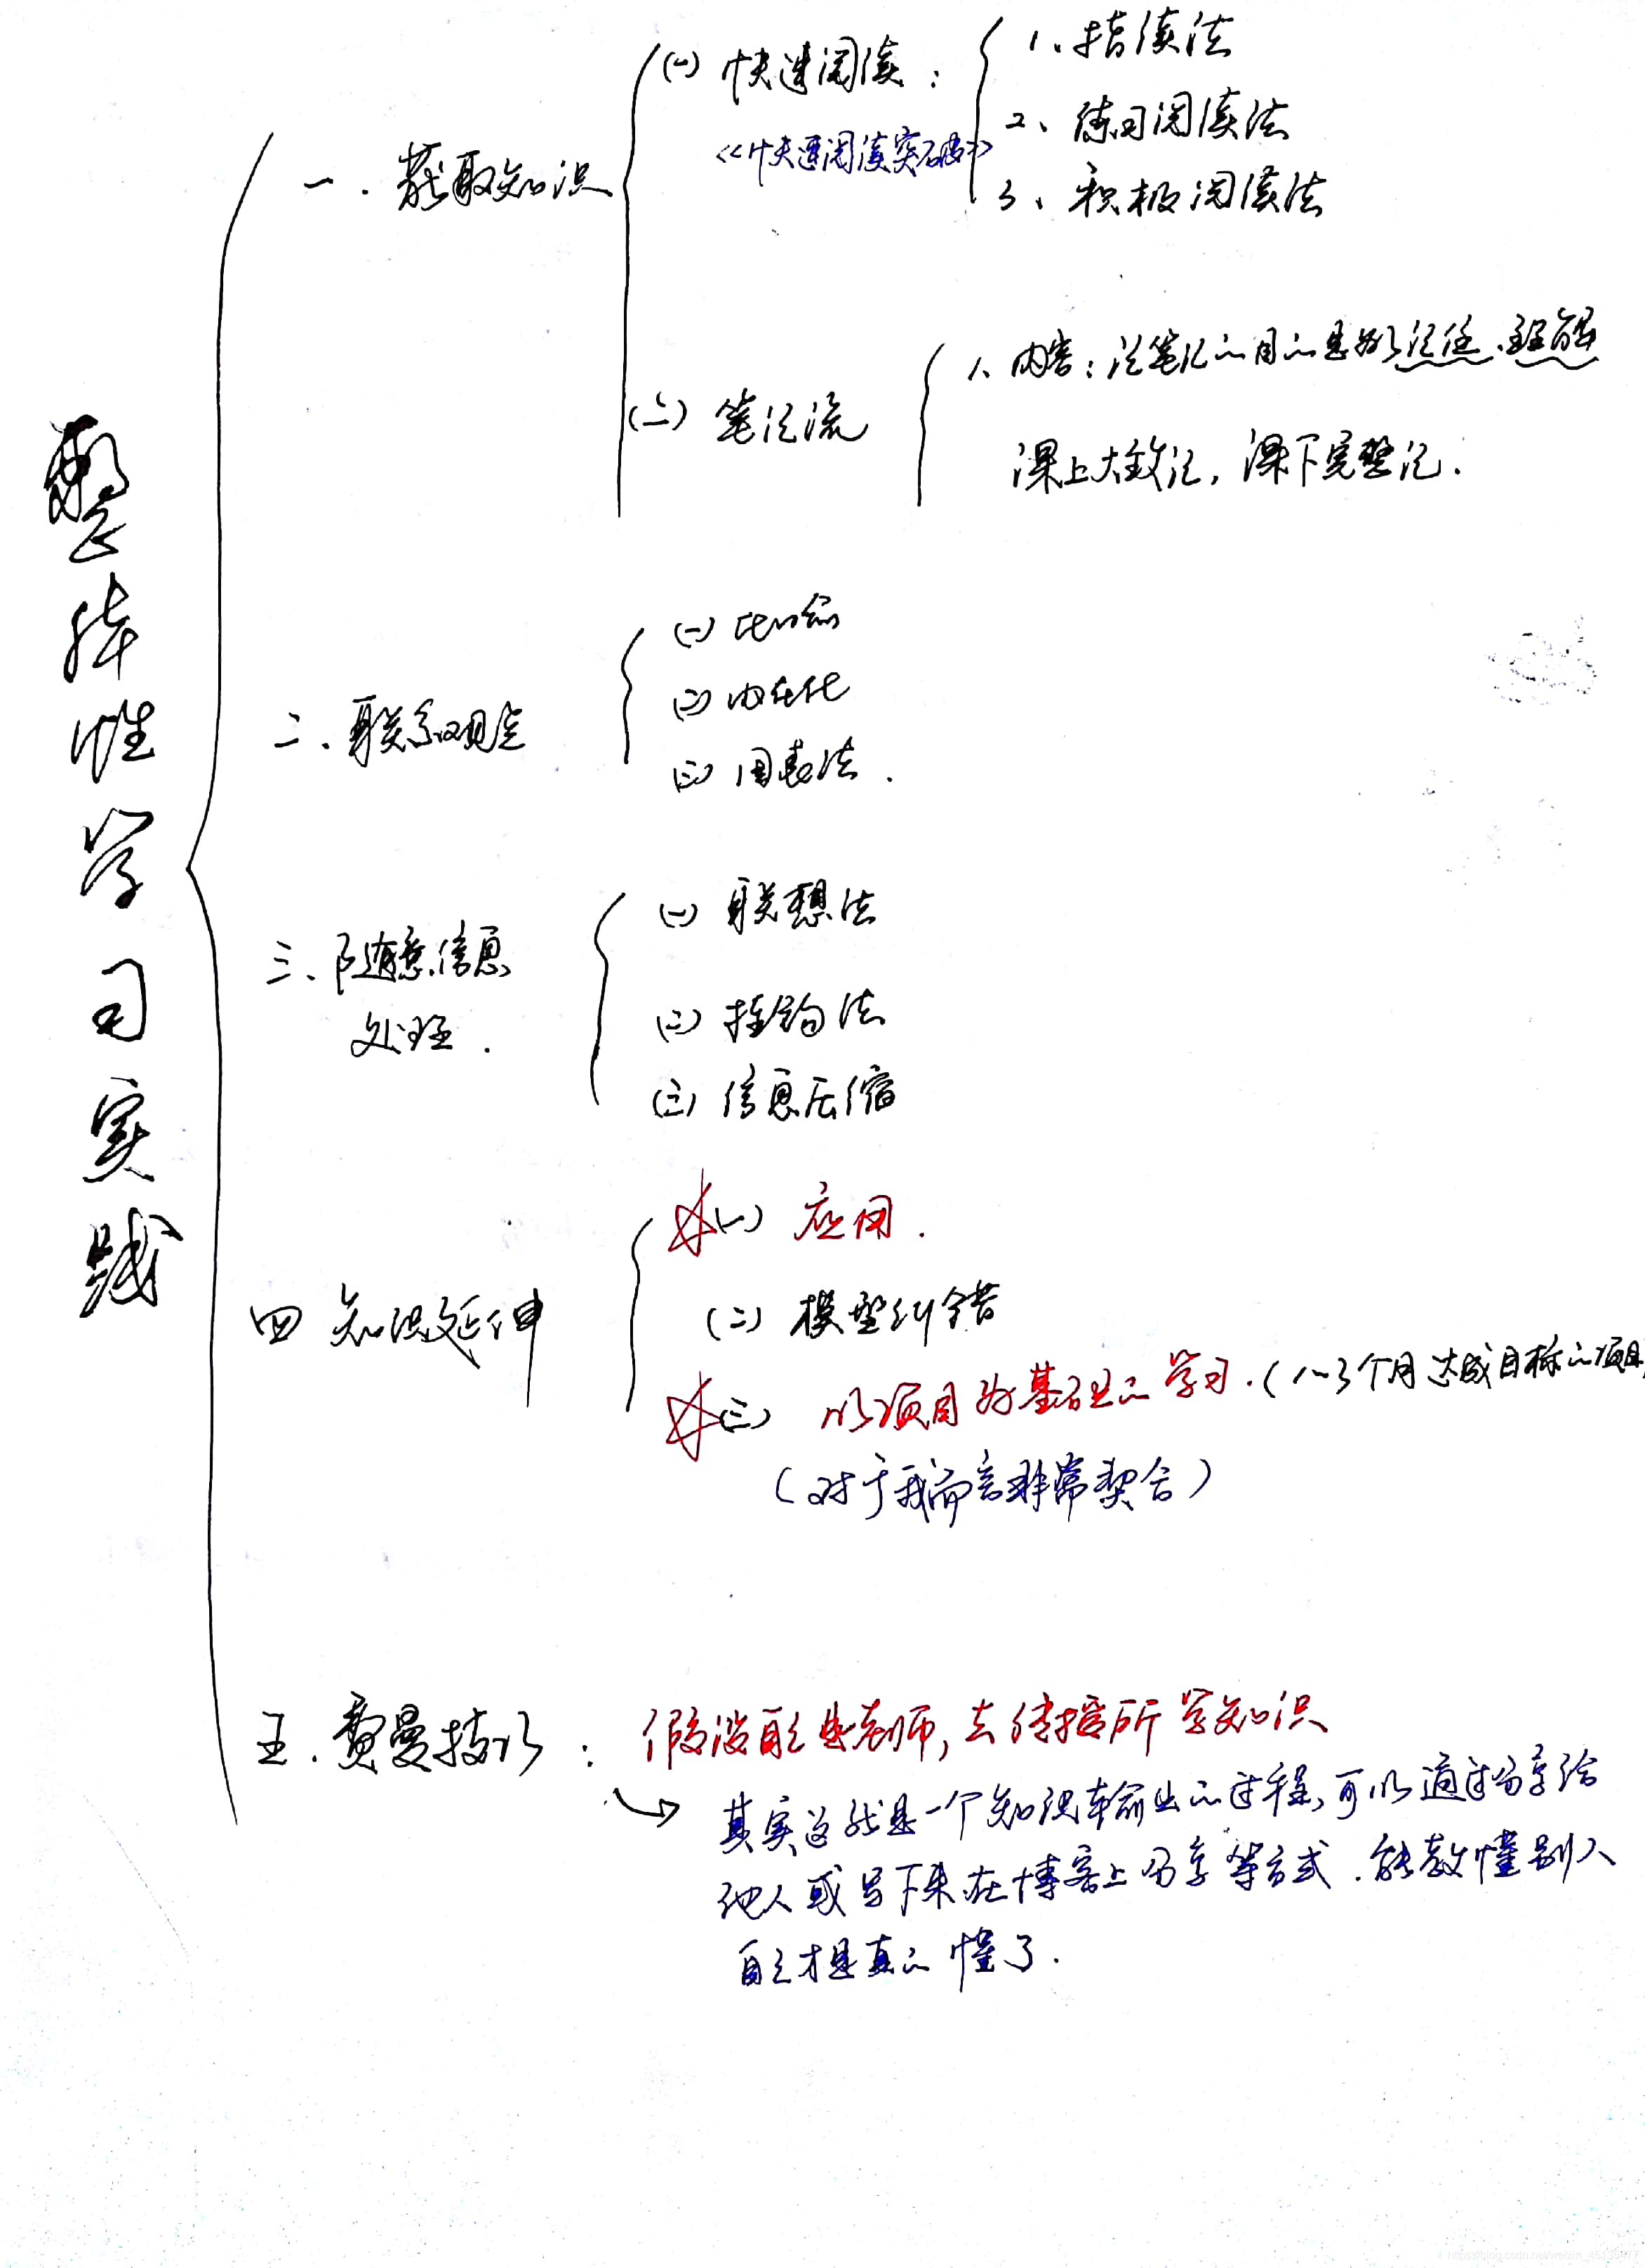 整体性学习实践
一、获取知识
(一) 快速阅读：
《快速阅读突破》
1、指读法
2、练习阅读法
3、积极阅读法
(二) 笔记流
1、内容：记笔记的目的是为了记住、理解
课上大致记，课下完整记.
二、联系观点
(一) 比喻
(二) 内在化
(三) 图表法.
三、随意信息
处理.
(一) 联想法
(二) 挂钩法
(三) 信息压缩
四 知识延伸
(一) 应用.
(二) 模型纠错
(三) 以项目为基础的学习.(1~3个月达成目标的项目
(对于我而言非常契合)
五、费曼技巧：
假设自己是老师，去传授所学知识
其实这就是一个知识输出的过程，可以通过分享给
他人或写下来在博客上分享等方式.能教懂别人
自己才是真的懂了.